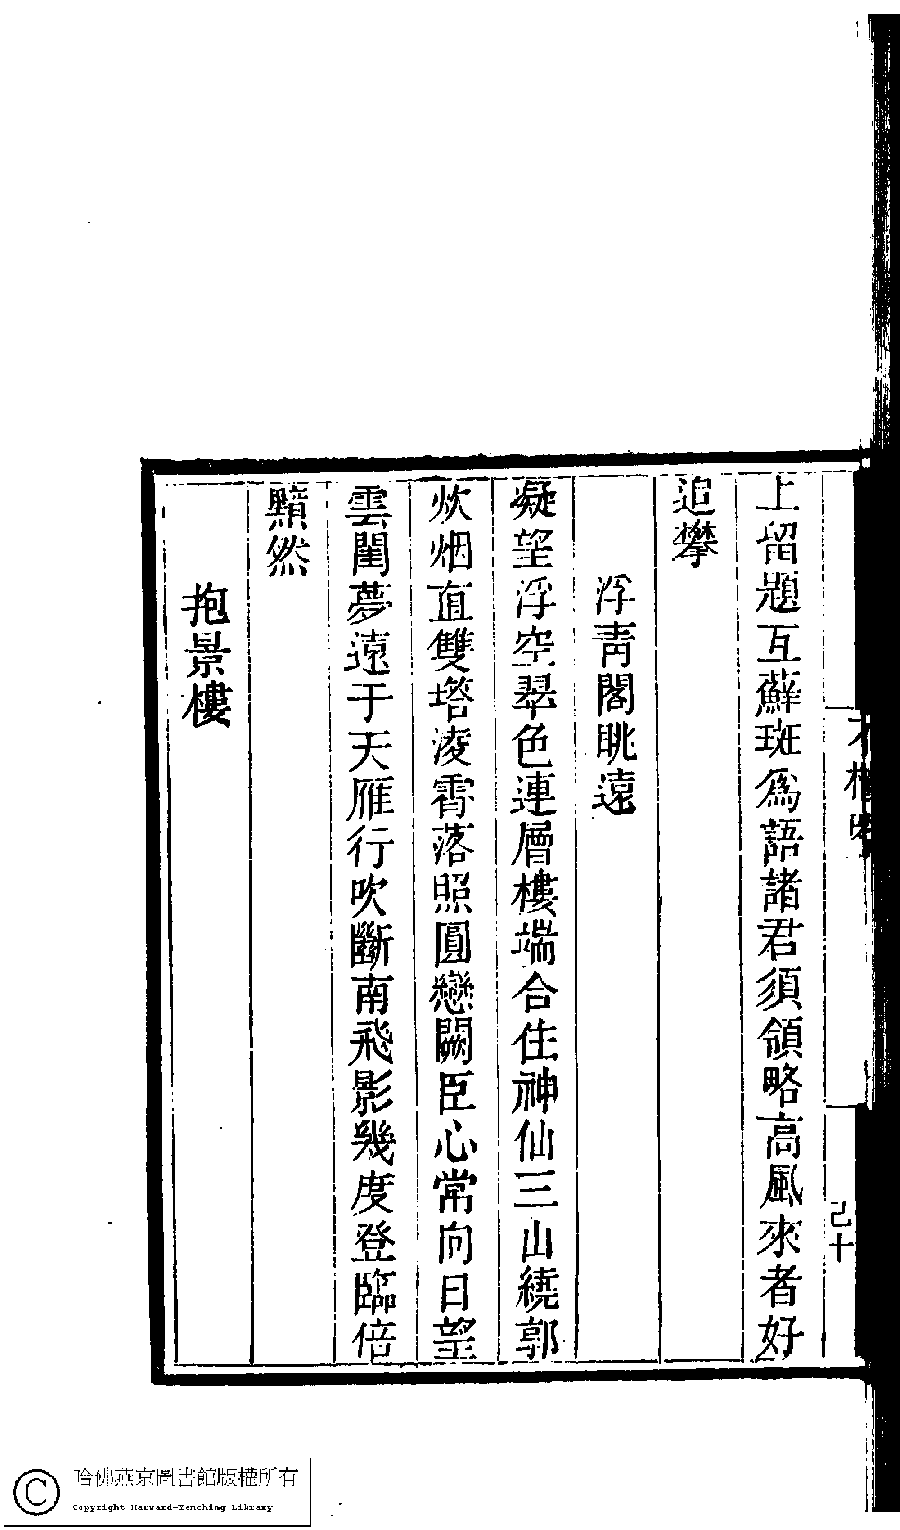 上留題互蘚斑為語諸君須領略高風來者好
追攀
浮青閣眺遠
凝望浮空翠色連層樓端合住神仙三山繞郭
炊烟直雙塔淩霄落照圓戀闕臣心常向日望
雲閨夢遠于天雁行吹斷南飛影幾度登臨倍
黯然
抱景樓
己十
哈佛燕京圖書館版權所有
Copyright Harvard-Yenching Library